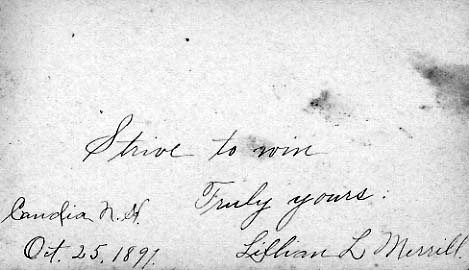 Strive to win
Truly yours.
Candia N.H. Lillian L Merrill.
Oct. 25, 1891.